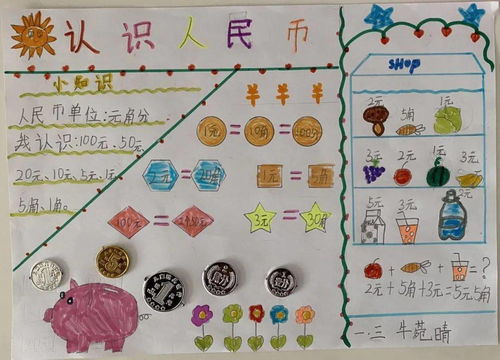 认识人民币
小知识
人民币单位:元角分
我认识:100元、50元
20元、10元、5元、1元
5角、1角。
¥ ¥ ¥
1元=10角=100分
2元=20角
1元=
100元=
3元=30角
SHOP
2元 5角 1元
3元 2元 1元 3元
5元 3元 2元
+ + =?
2元+5角+3元=5元5角
一.三 牛苑晴